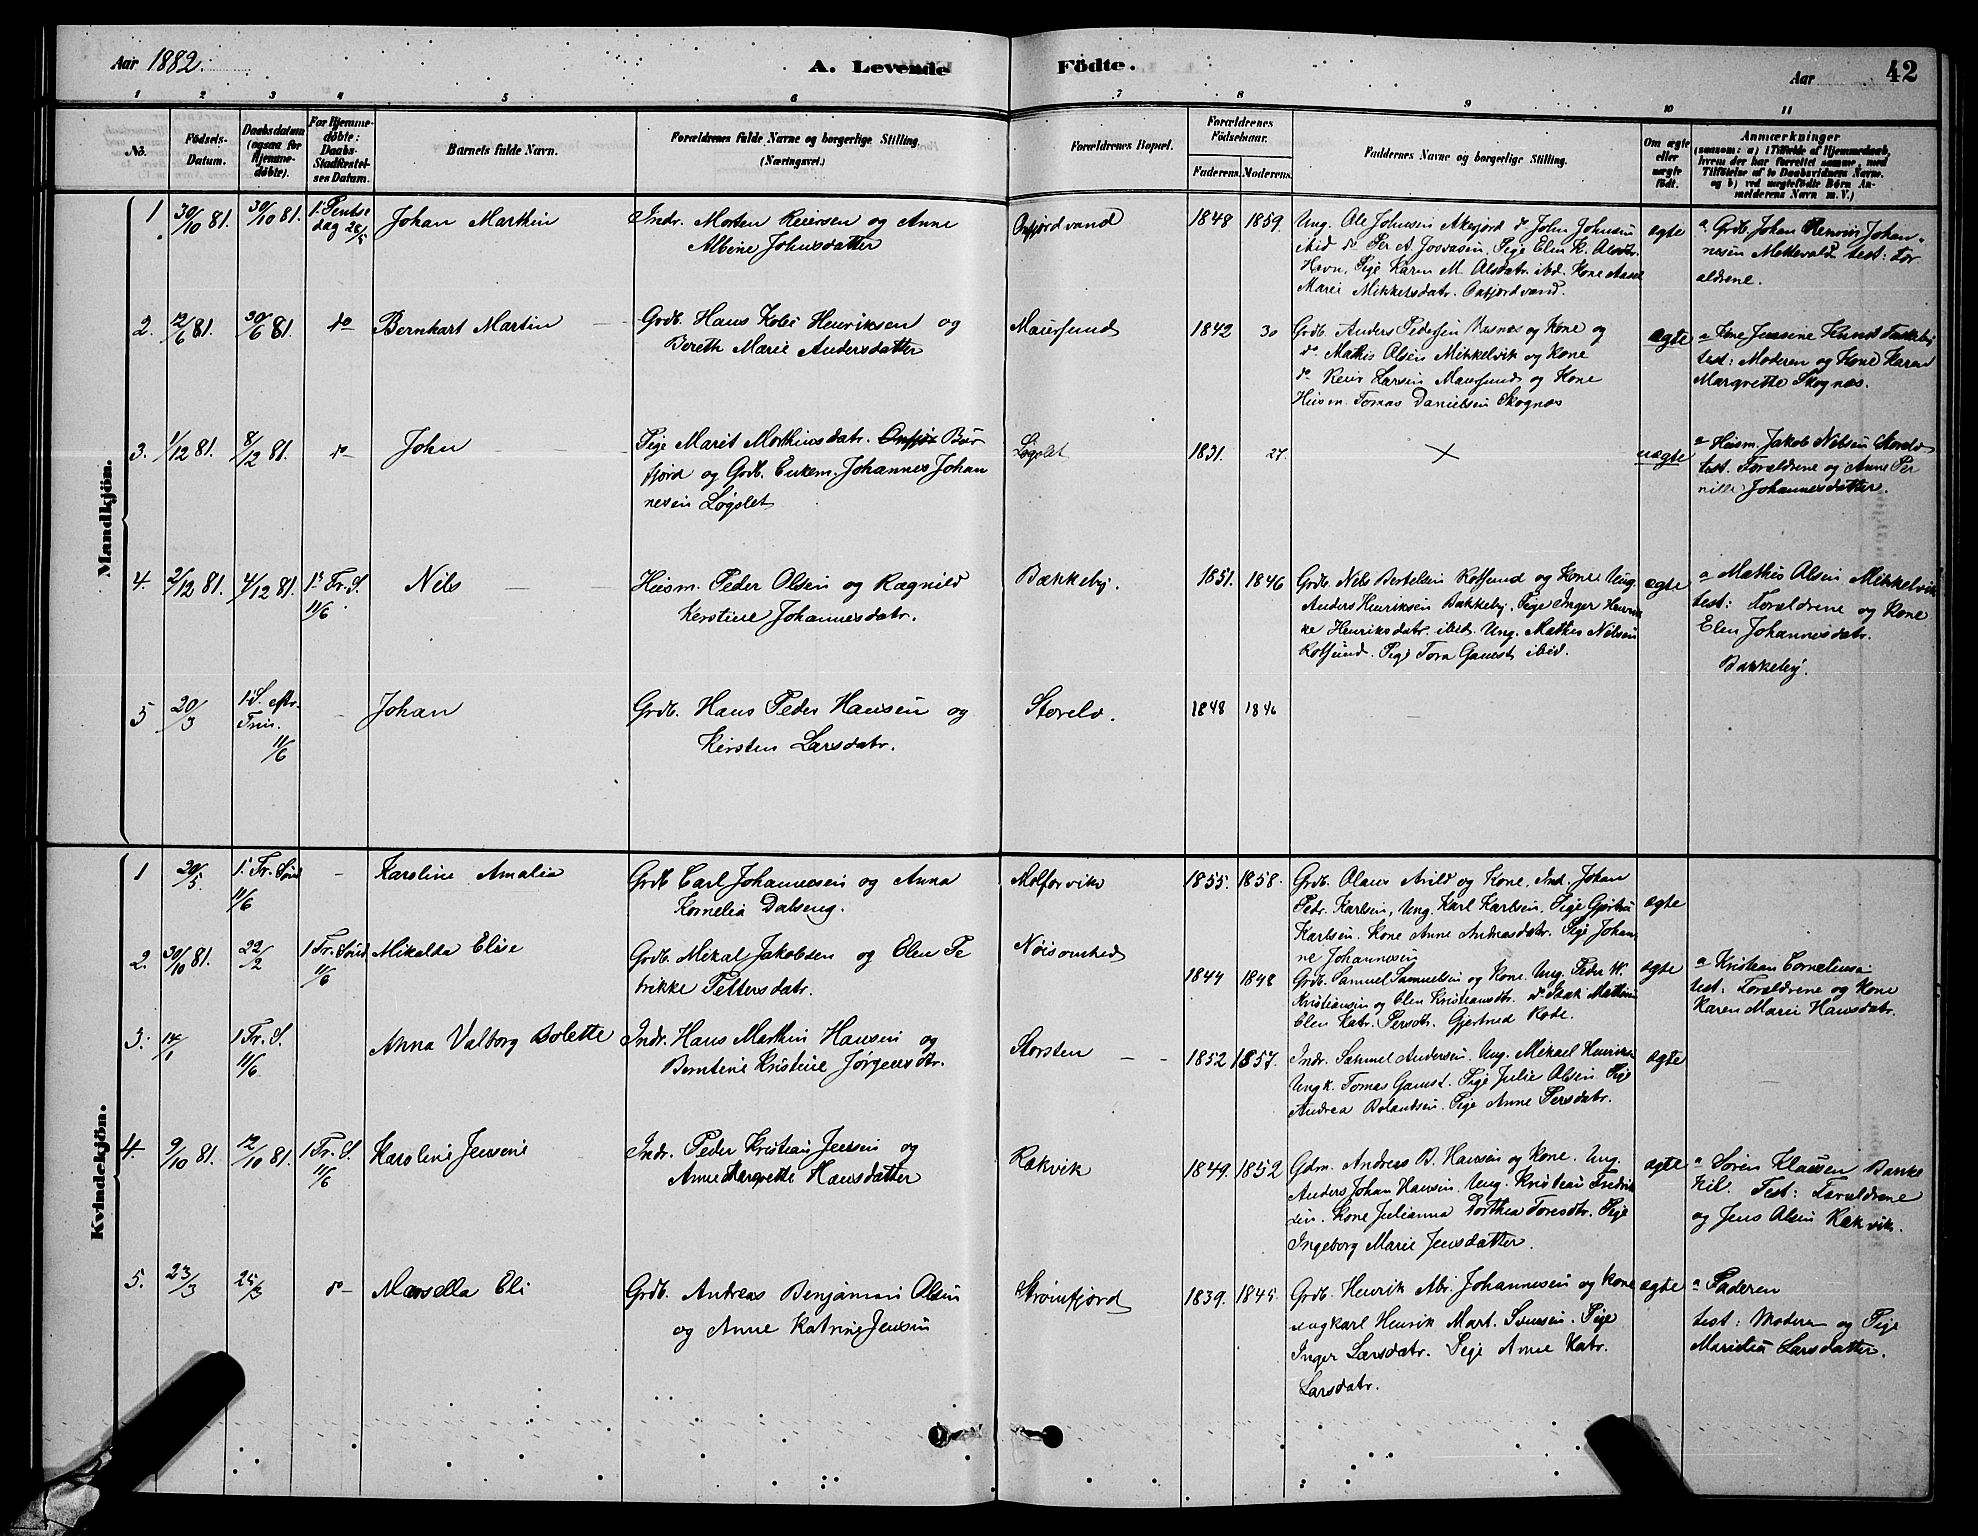 Aar 1882.
A. Levende Födte.
Aar
42
1 2 3 4 5 6 7 8 9 10 11
No.
Födsels-Datum.
Daabsdatum (ogsaa for Hjemmedöbte).
For Hjemmedöbte: Daabs-Stadfæstelses Datum.
Barnets fulde Navn.
Forældrenes fulde Navne og borgerlige Stilling. (Næringsvei.)
Forældrenes Bopæl.
Forældrenes Födselsaar.
Faderens. Moderens.
Faddernes Navne og borgerlige Stilling.
Om ægte eller uægte födt.
Anmærkninger
(saasom: a) i Tilfælde af Hjemmedaab, hvem der har forrettet samme, med Tilföielse af to Daabsvidners Navne, og b) ved uægtefödte Börn Anmelderens Navn m. V.)
Mandkjön.
1. 30/10 81. 30/10 81. 1. Pentse
dag 28/5
Johan Marthin
Indr. Morten Reiersen og Anne
Albine Johnsdatter
1848 1859.
Ung. Ole Johnsen Akefjord do John Johnsen
ibid do Per A. Josvasen, Pige Elen K. Olsdtr.
Havn, Pige Karen M. Olsdatr. ibd. Kone
Marei Mikkelsdatr.
ægte
a Grdb. Johan Johan-
nesen test: For
ældrene.
2. 12/6 81. 30/6 81. do
Bernhart Martin
Grdb. Hans Henriksen og
Bereth Marie Andersdatter
Maursund
1842 30
Grdb. Anders Pedersen Vasnæs og Kone og
do Mathis Olsen Mikkelvik og Kone
do Reier Larsen Maursund og Kone
Husm. Tomas Danielsen Skognæs
ægte
a Kone Jensine
test: Moderen og Kone Karen
Margrette Skognæs.
3. 1/12 81. 8/12 81. do
John
Pige Marit Morthinsdatr. Bur
fjord og Grdb. Enkem. Johannes Johan
nesen Løgslet
Løgslet
1831. 27.
uægte
a Husm. Jakob Nilsen Storelv
test. Forældrene og Anne Per
nille Johannesdatter.
4. 2/12 81. 4/12 81. 1. Fr. S.
11/6
Nils
Husm. Peder Olsen og Ragnild
Kerstine Johannesdatr.
Bakkeby.
1851. 1846
Grdb. Nils Bertelsen Rotsund og Kone Ung.
Anders Henriksen Bakkeby, Pige Inger Henrik
ke Henriksdatr. ibid. Ung. Mathis Nilsen
Rotsund. Pige Tora Ganest ibid.
ægte
a Mathis Olsen Mikkelvik
test: Forældrene og Kone
Elen Johannesdatr.
Bakkeby.
5 20/3 1. S. eftr.
Trin.
11/6
Johan
Grdb. Hans Peder Hansen og
Kirsten Larsdatr.
Storelv.
1848 1846
Kvindekjön.
1 20/5. 1. Fr. Sønd
11/6
Karoline Amalia
Grdb Carl Johannesen og Anna
Kornelia Dalseng.
Molforvik
1855. 1858.
Grdb. Olaus Arild og Kone, Ind. Johan
Pedr. Karlsen, Ung. Karl Karlsen. Pige
Karlsen. Kone Anne Andreasdatr. Pige Johan
ne Johannesen
ægte
2. 30/10 81. 22/2 1 Fr. Sønd
11/6
Mikalda Elise
Grdb. Mikal Jakobsen og Elen Fe
drikke Pettersdatr.
Nøisomhed
1844 1848
Grdb. Samuel Samuelsen og Kone. Ung. Peder W.
Kristiansen og Elen Kristiansdtr.
Elen Katr. Persdtr. Gjertrud
ægte
a Kristian Corneliusen
test: Forældrene og Kone
Karen Marie Hansdatr.
3. 14/1 1 Fr. S.
11/6
Anna Valborg Bolette
Indr. Hans Marthin Hansen og
Berntine Kristine Jørgensdtr.
Storsten
1852 1857.
Indr. Samuel Andersen. Ung. Mikael Henriks
Ungk. Tomas Ganest. Pige Julie Olsen. Pige
Andrea Rolandsen. Pige Anne Persdatr.
ægte
4. 9/10 81. 12/10 81. 1 Fr. S.
11/6
Karoline Jensine
Indr. Peder Kristian Jensen og
Anne Margrette Hansdatter
Rakvik
1849. 1852
Gdm. Andreas B. Hansen og Kone. Ung.
Anders Johan Hansen. Ung. Kristian Fredrik
sen. Kone Julianna Dorthea Toresdtr. Pige
Ingeborg Marie Jensdatter.
ægte
a Søren Klausen
Test: Forældrene
og Jens Olsen Rakvik.
5. 23/3 25/3 do
Marsella Eli
Grdb. Andreas Benjamin Olsen
og Anne Katrine Jensen
Strømfjord
1839. 1845.
Grdb. Henrik Abr. Johannesen og Kone
ungkarl Henrik Mart. Pige
Inger Larsdatr. Pige Anne Katr.
Larsdatr.
ægte
a Faderen
test: Moderen og Pige
Larsdatter.